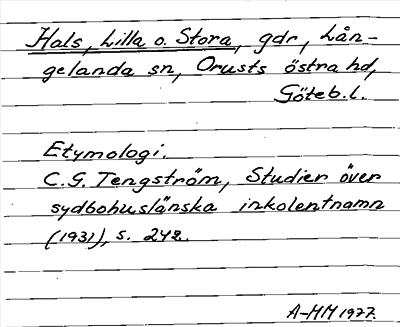 Hals, Lilla o. Stora, gdr, Lån-
gelanda sn, Orusts östra hd,
Göteb.l.
Etymologi.
C.G. Tengström, Studier över
sydbohuslänska inkolentnamn
(1931), s. 242.
A-MM 1977.